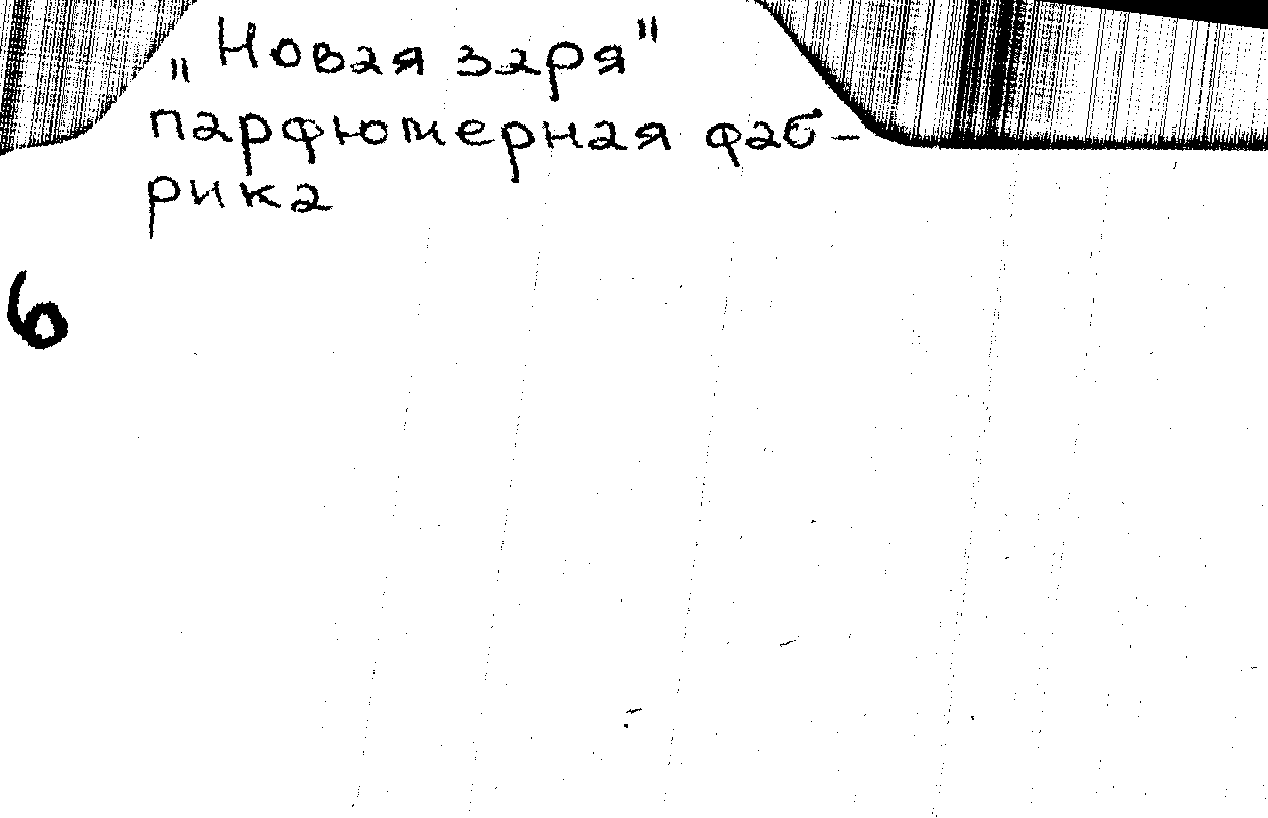 „Новая заря"
парфюмерная фаб-
рика
6